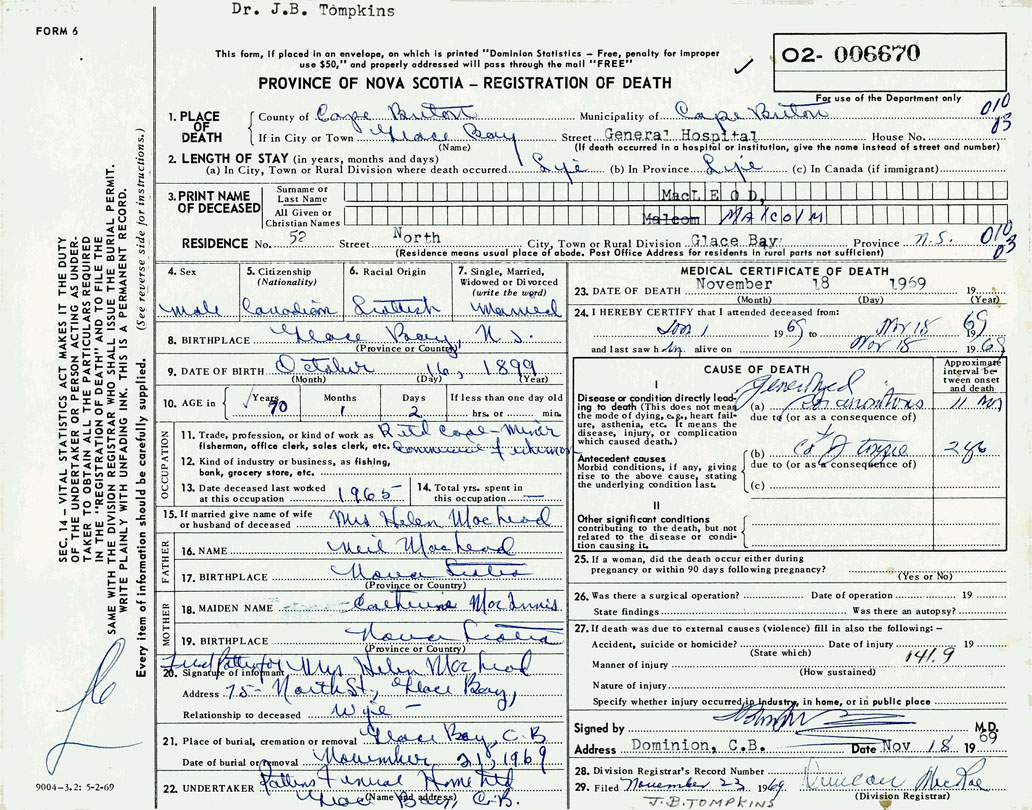 Dr. J.B. Tompkins
FORM 6
This form, if placed in an envelope, on which is printed "Dominion Statistics – Free, penalty for improper
use $50," and properly addressed will pass through the mail "FREE"
02- 006670
PROVINCE OF NOVA SCOTIA – REGISTRATION OF DEATH
For use of the Department only
1. PLACE OF DEATH
County of Cape Breton Municipality of Cape Breton 010
If in City or Town Glace Bay Street General Hospital House No. 03
(Name) (If death occurred in a hospital or institution, give the name instead of street and number)
2. LENGTH OF STAY (in years, months and days)
(a) In City, Town or Rural Division where death occurred Life (b) In Province Life (c) In Canada (if immigrant)
3. PRINT NAME OF DECEASED
Surname or Last Name MacLEOD,
All Given or Christian Names Malcom MALCOLM
RESIDENCE No. 52 Street North City, Town or Rural Division Glace Bay Province N.S. 010 03
(Residence means usual place of abode. Post Office Address for residents in rural parts not sufficient)
4. Sex
male
5. Citizenship (Nationality)
Canadian
6. Racial Origin
Scottish
7. Single, Married, Widowed or Divorced (write the word)
Married
8. BIRTHPLACE Glace Bay, N.S.
(Province or Country)
9. DATE OF BIRTH October 16, 1899
(Month) (Day) (Year)
10. AGE IN Years 70 Months 1 Days 2 If less than one day old hrs. or min.
OCCUPATION
11. Trade, profession, or kind of work as Retd Coal-Miner
fisherman, office clerk, sales clerk, etc. Commercial Fisherman
12. Kind of industry or business, as fishing,
bank, grocery store, etc.
13. Date deceased last worked at this occupation 1965
14. Total yrs. spent in this occupation —
15. If married give name of wife or husband of deceased Mrs Helen MacLeod
FATHER
16. NAME Neil MacLeod
17. BIRTHPLACE Nova Scotia
(Province or Country)
MOTHER
18. MAIDEN NAME Catherine MacInnis
19. BIRTHPLACE Nova Scotia
(Province or Country)
20. Signature of informant Mrs Helen MacLeod
Address North St., Glace Bay,
Relationship to deceased Wife –
21. Place of burial, cremation or removal Glace Bay, C.B
Date of burial or removal November 21, 1969
22. UNDERTAKER Funeral Home Ltd
(Name and address)
Glace Bay C.B.
MEDICAL CERTIFICATE OF DEATH
23. DATE OF DEATH November 18 1969 19
(Month) (Day) (Year)
24. I HEREBY CERTIFY that I attended deceased from:
1 1969 to Nov 18 1969
and last saw him alive on Nov 18 1969
CAUSE OF DEATH
Approximate interval between onset and death
I
Disease or condition directly leading to death (This does not mean the mode of dying, e.g., heart failure, asthenia, etc. It means the disease, injury, or complication which caused death.)
(a) Generalized carcinomatosis
due to (or as a consequence of)
Antecedent causes
Morbid conditions, if any, giving rise to the above cause, stating the underlying condition last.
(b) Ca of tongue
due to (or as a consequence of)
(c)
II
Other significant conditions contributing to the death, but not related to the disease or condition causing it.
25. If a woman, did the death occur either during
pregnancy or within 90 days following pregnancy?
(Yes or No)
26. Was there a surgical operation? Date of operation 19
State findings Was there an autopsy?
27. If death was due to external causes (violence) fill in also the following: –
Accident, suicide or homicide? Date of injury 19
(State which) 141.9
Manner of injury
(How sustained)
Nature of injury
Specify whether injury occurred in industry, in home, or in public place
Signed by M.D.
Address Dominion, C.B. Date Nov 18 19 69
28. Division Registrar's Record Number
29. Filed November 22 1969 Duncan MacRae
(Division Registrar)
J.B.TOMPKINS
SEC. 14 – VITAL STATISTICS ACT MAKES IT THE DUTY
OF THE UNDERTAKER OR PERSON ACTING AS UNDER-
TAKER TO OBTAIN ALL THE PARTICULARS REQUIRED
IN THE "REGISTRATION OF DEATH" AND TO FILE THE
SAME WITH THE DIVISION REGISTRAR WHO SHALL ISSUE THE BURIAL PERMIT.
WRITE PLAINLY WITH UNFADING INK. THIS IS A PERMANENT RECORD.
Every item of information should be carefully supplied. (See reverse side for instructions.)
9004-3.2: 5-2-69